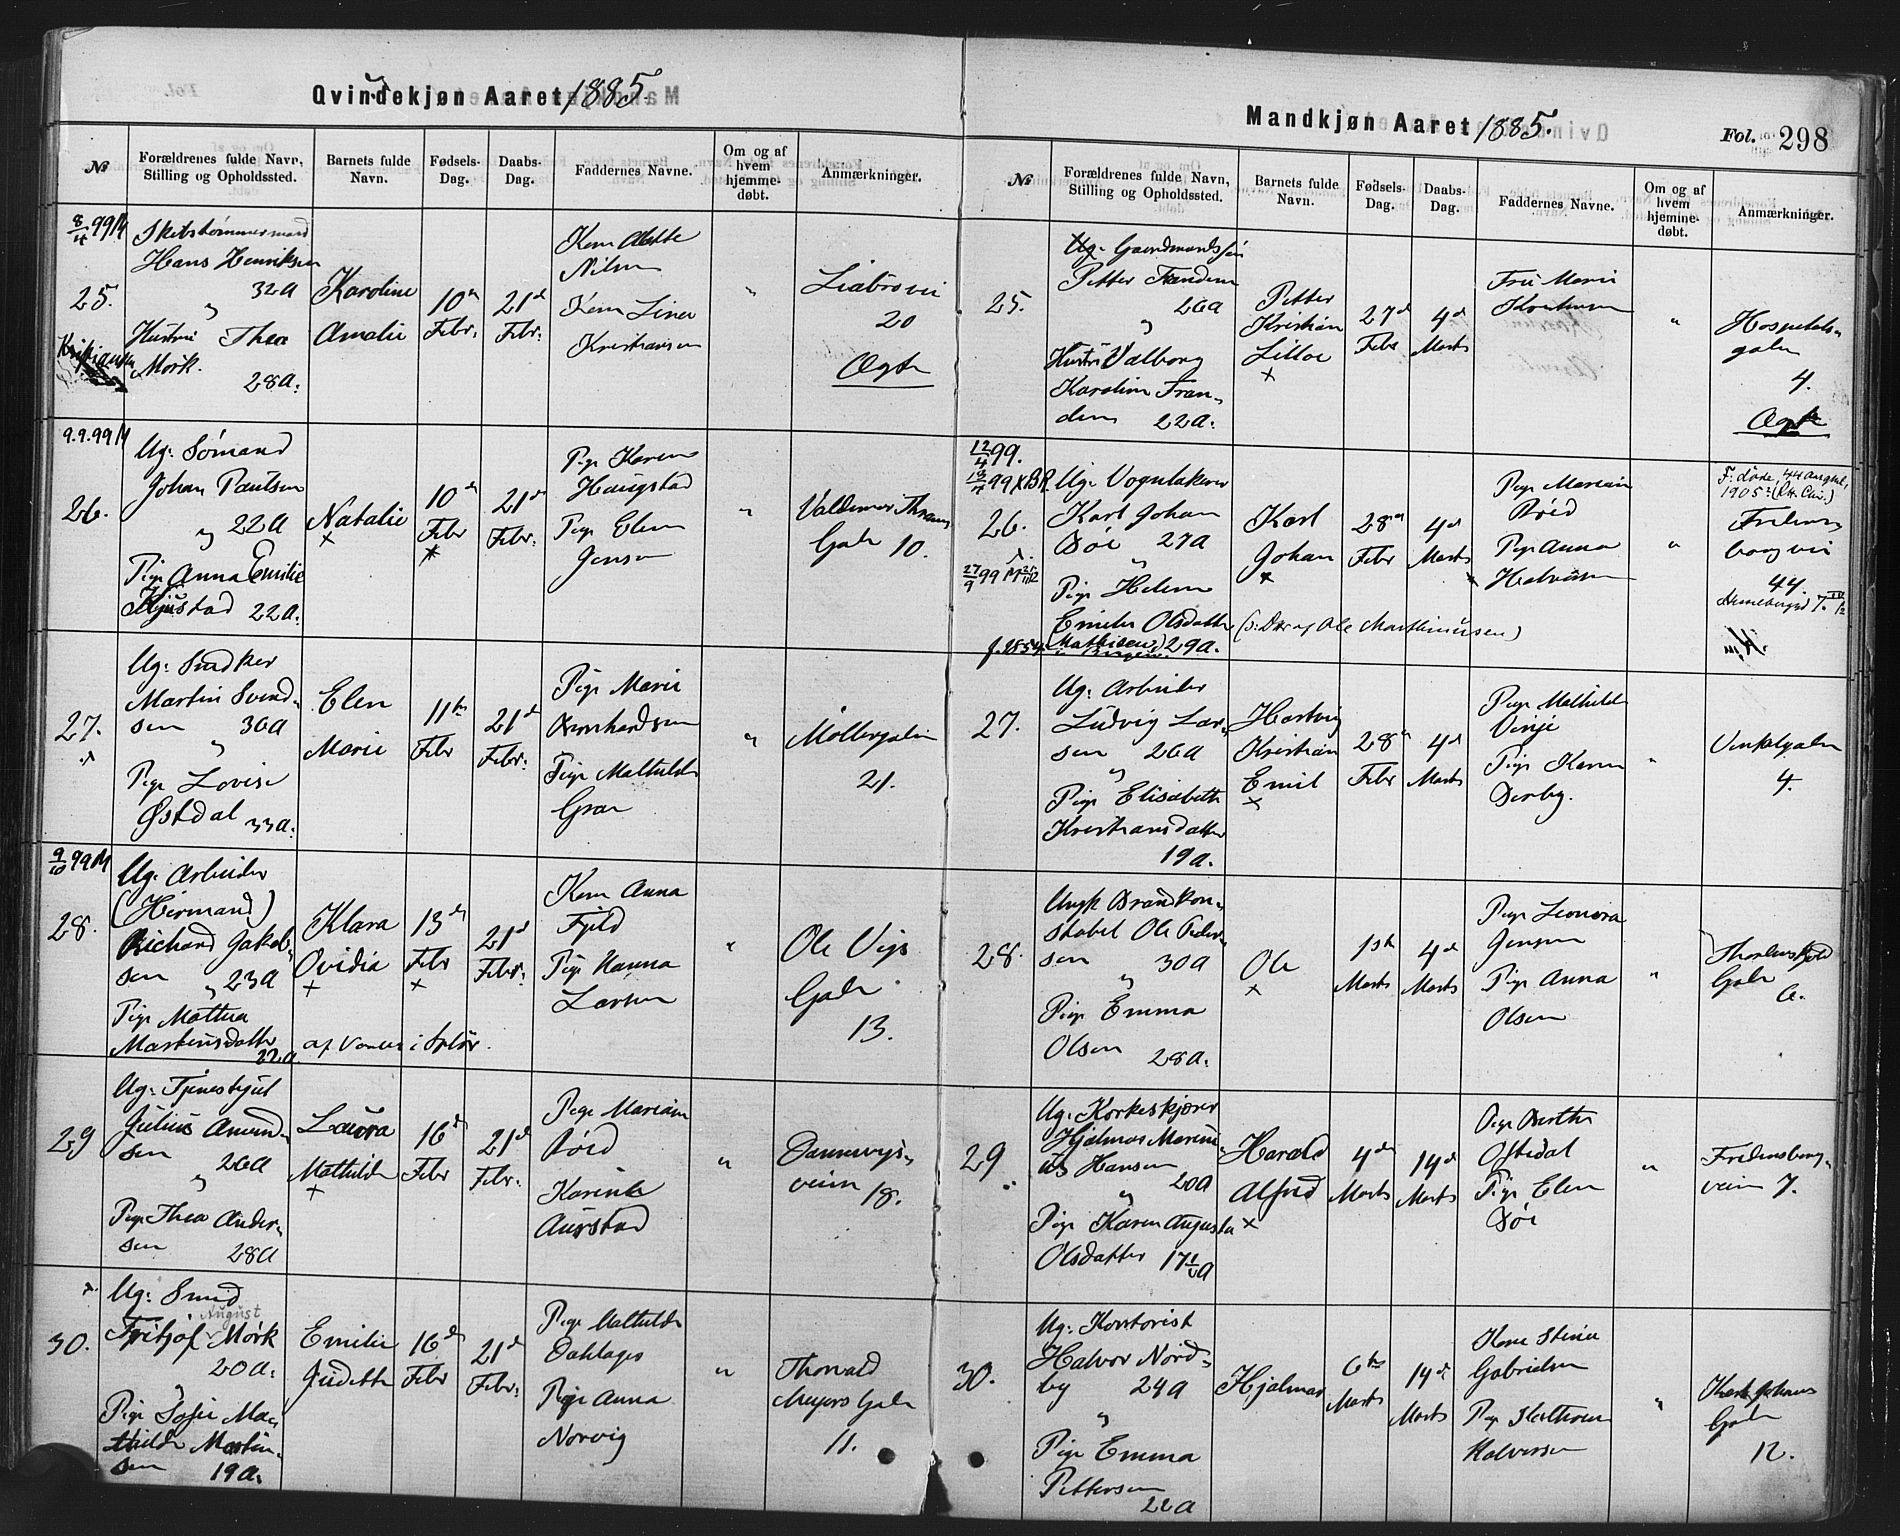 Qvindekjøn Aaret 1885.
№
Forældrenes fulde Navn,
Stilling og Opholdssted.
Barnets fulde
Navn.
Fødsels-
Dag.
Daabs-
Dag.
Faddernes Navne.
Om og af
hvem
hjemme-
døbt.
Anmærkninger.
8/4 99 M
25.
Hans Henriksen
32 A
"
Hustru Thea
Mørk.
28 A.
Karoline
Amalie
10de
Febr.
21de
Febr.
Nilsen
Kristiansen
"
Liabrovei
20
Ægte
9.9.99 M
26.
Ug. Sømand
Johan Paulsen
" 22 A
Pige Anna Emilie
22 A.
Natalie
×
10de
Febr
21de
Febr.
Pige Karen
Haugstad
Pige Elen
Jensen
"
Gade 10.
27.
Ug. Snedker
Martin Svend-
sen 36 A
"
Pige Lovise
Østdal 33 A.
Elen
Marie
11te
Febr
21de
Febr.
Pige Marie
Bernhardsen
Pige Mathilde
Gran
"
Møllergaden
21.
9/10 99 M
28.
Ug. Arbeider
Richard Jakob-
sen " 23 A
Pige Mathea
Martinsdatter
22 A
Klara
Ovidia
×
13de
Febr
×
21de
Febr.
Kone Anna
Fjeld
Pige Hanna
Larsen
"
Ole Vigs
Gade
13.
29
Ug. Tjenestegut
Julius Amund-
sen 26 A
"
Pige Thea Ander-
sen 28 A
Laura
Mathilde
×
16de
Febr
21de
Febr.
Pige Mariane
Røed
Aurstad
"
Dannevigs-
veien
18.
30.
Ug. Smed
August
Fritjof Mørk
20 A.
"
Pige Sofie Ma-
thilde Martin-
sen 19 A.
Emilie
Judette
16de
Febr
21de
Febr.
Pige Mathilde
Pige Anna
Norvig
"
Thorvald
Meyers Gade
11.
Mandkjøn Aaret 1885.
Fol. 298
№
Forældrenes fulde Navn,
Stilling og Opholdssted.
Barnets fulde
Navn.
Fødsels-
Dag.
Daabs-
Dag.
Faddernes Navne.
Om og af
hvem
hjemme-
døbt.
Anmærkninger.
25.
Petter Frandsen
26 A
"
Hustru Valborg
Karoline Fran-
dsen 22 A.
Petter
Kristian
×
27de
Febr
4de
Marts
Fru Marie
"
Hospitals-
gaden
4.
Ægte
12/4 99.
26.
Karl Johan
Bøe 27 A
"
Pige Helene
Emilie Olsdatter
(Mathisen) 29 A.
(ɔ: Datter af Ole Marthinusen)
Karl
Johan
×
28de
Febr
4de
Marts
Pige Mariane
Røed
Pige Anna
Halvorsen
"
Fredens-
borgvei
44.
27.
Ug. Arbeider
Ludvig Lar-
sen 26 A
"
Pige Elisabeth
Kristiansdatter
19 A.
Hartvig
Kristian
Emil
×
28de
Febr
4de
Marts
Pige Mathilde
Vinje
Pige Karen
Derby.
"
Vinkelgaden
4.
28.
Ungk Brandkon-
stabel Ole Peder-
sen 30 A
"
Pige Emma
Olsen 28 A.
Ole
×
1ste
Marts
4de
Marts
Pige Leonora
Jensen
Pige Anna
Olsen
"
Gade
6.
29
Ug. Korkeskjærer
Hjalmar Marini-
us Hansen
20 A
"
Pige Karen Augusta
Olsdatter 17½ A
Harald
Alfred
×
4de
Marts
14de
Marts
Pige Berthe
Oftedal
Pige Elen
Bøe
"
Fredensborg-
veien 7.
30.
Ug. Kontorist
Halvor Nord-
by 24 A
"
Pige Emma
Pettersen
22 A
Hjalmar
6te
Marts
14de
Marts
Kone Stina
Gabrielsen
Halvorsen
"
Karl Johans
Gade
12.